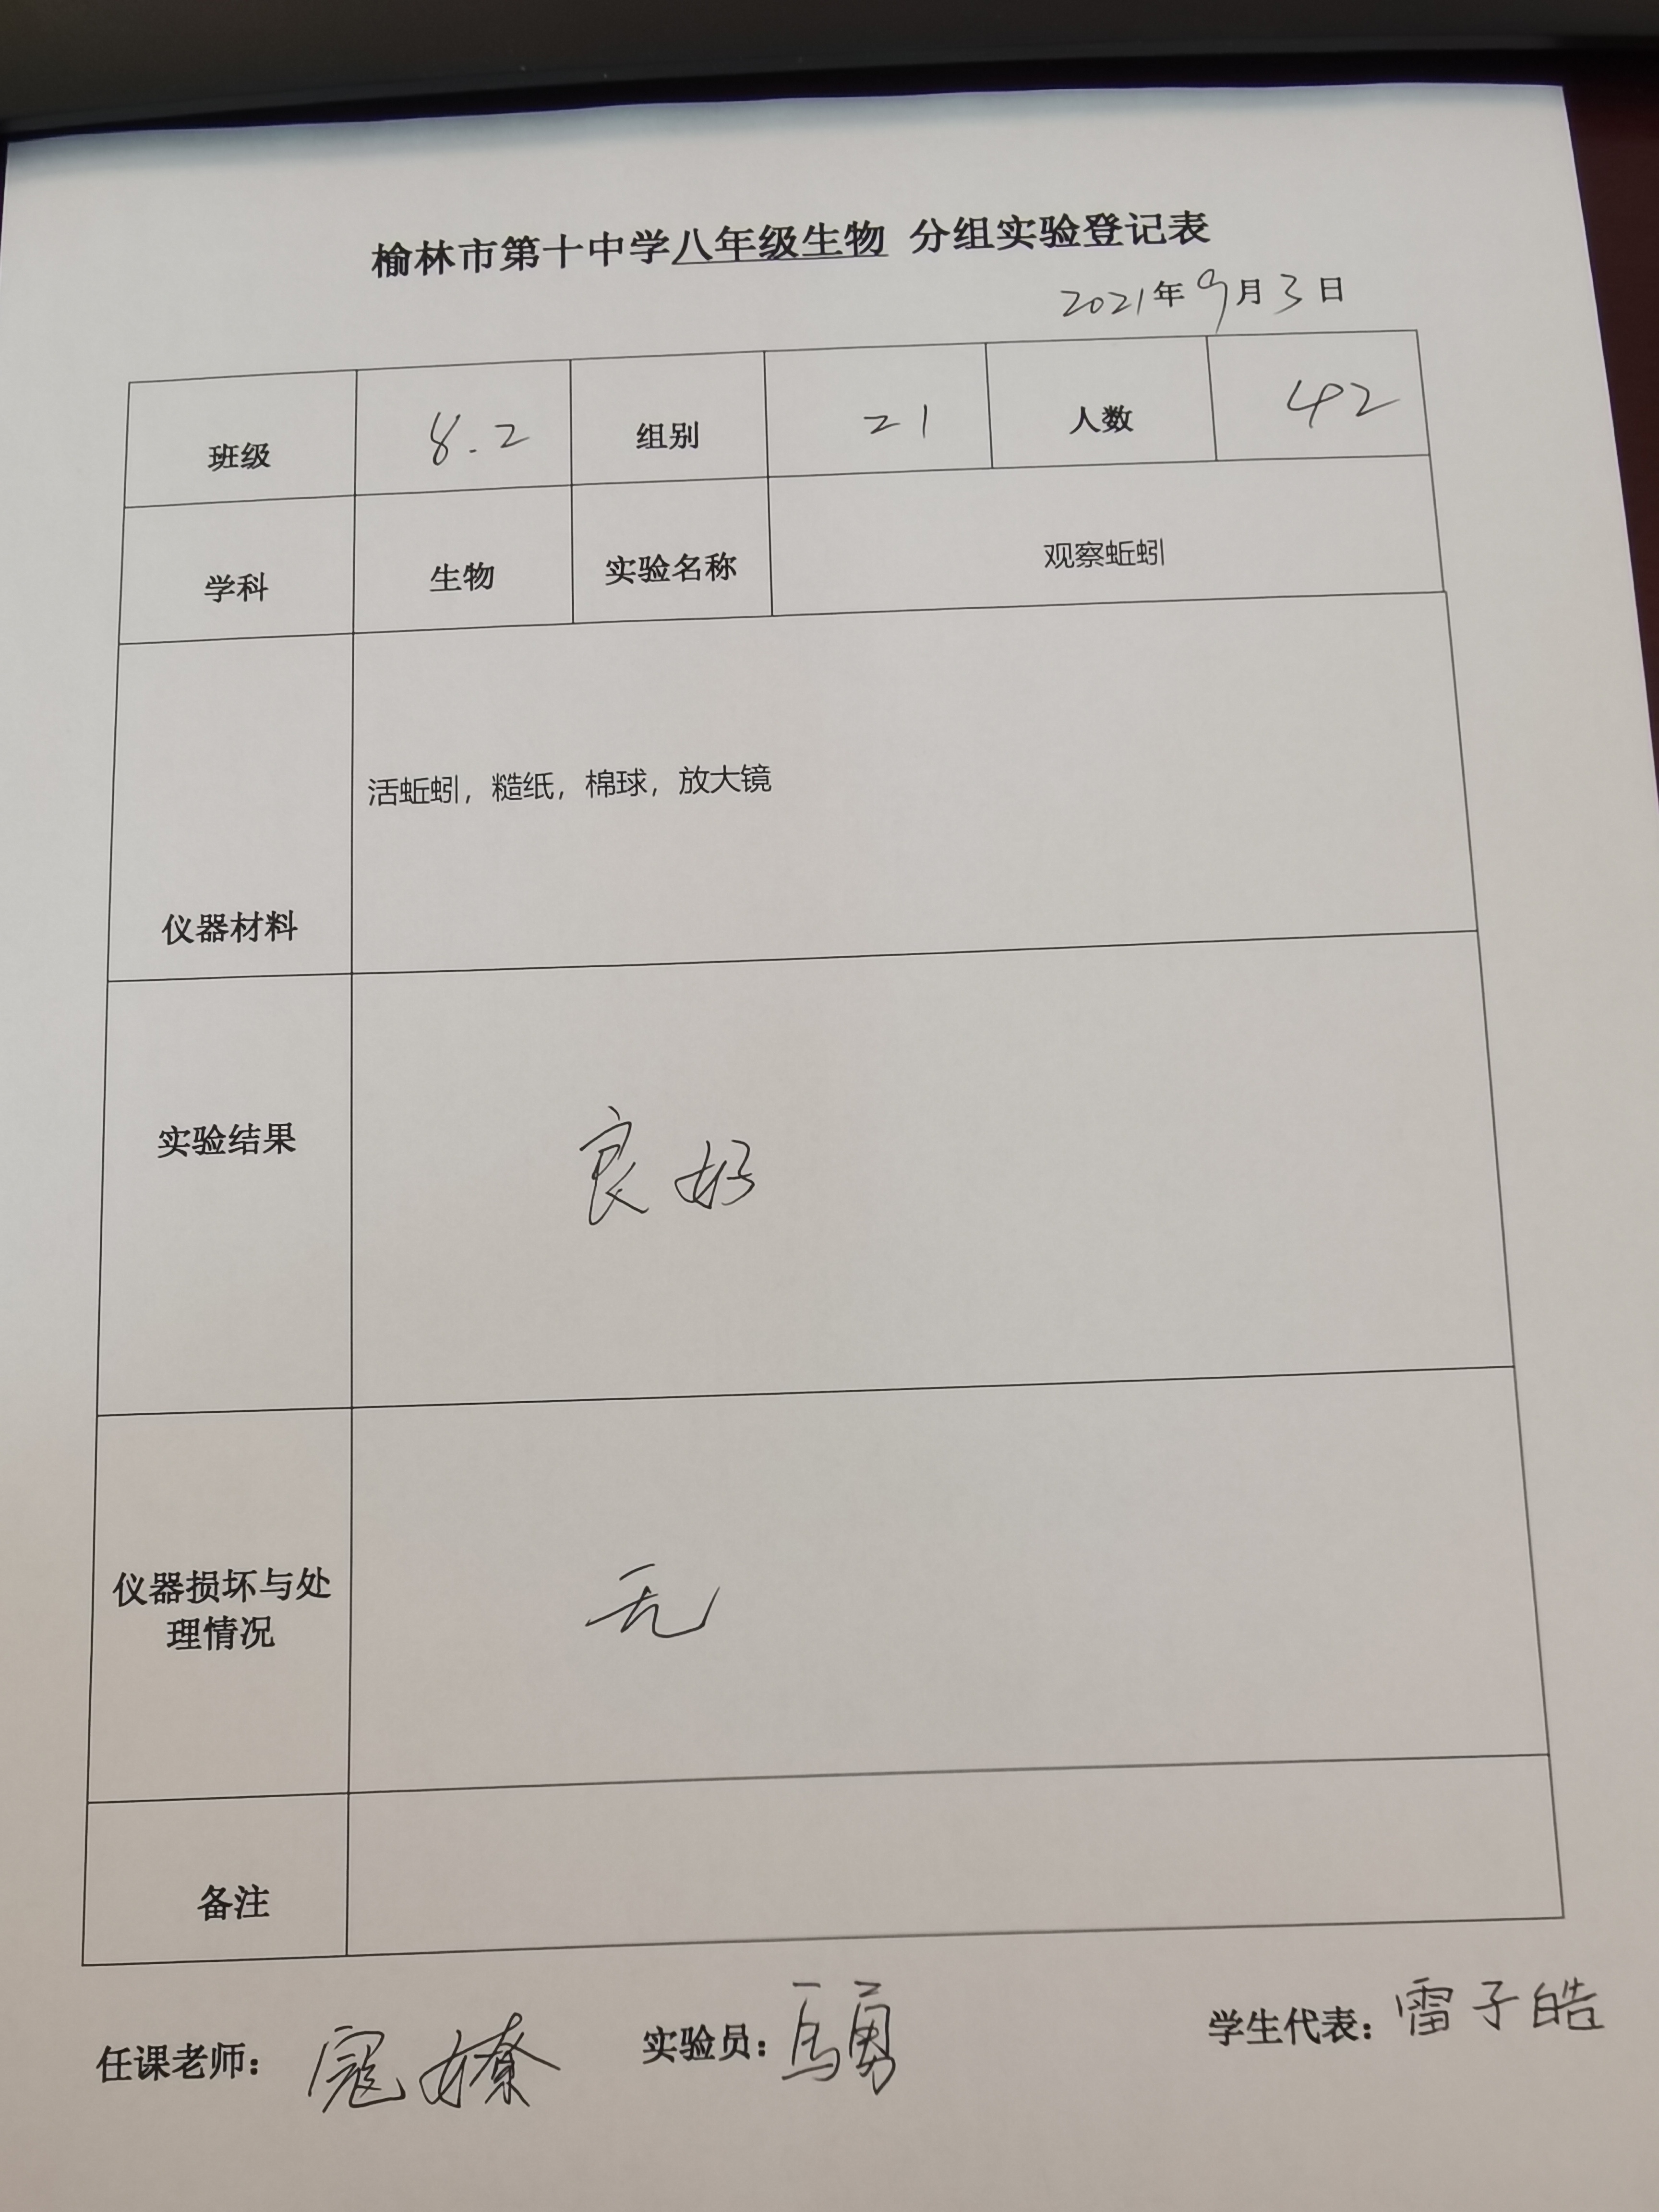 榆林市第十中学八年级生物 分组实验登记表
2021年9月3日
班级 8.2 组别 21 人数 42
学科 生物 实验名称 观察蚯蚓
仪器材料 活蚯蚓，糙纸，棉球，放大镜
实验结果 良好
仪器损坏与处
理情况 无
备注
任课老师： 寇嫽 实验员： 马勇 学生代表：雷子皓